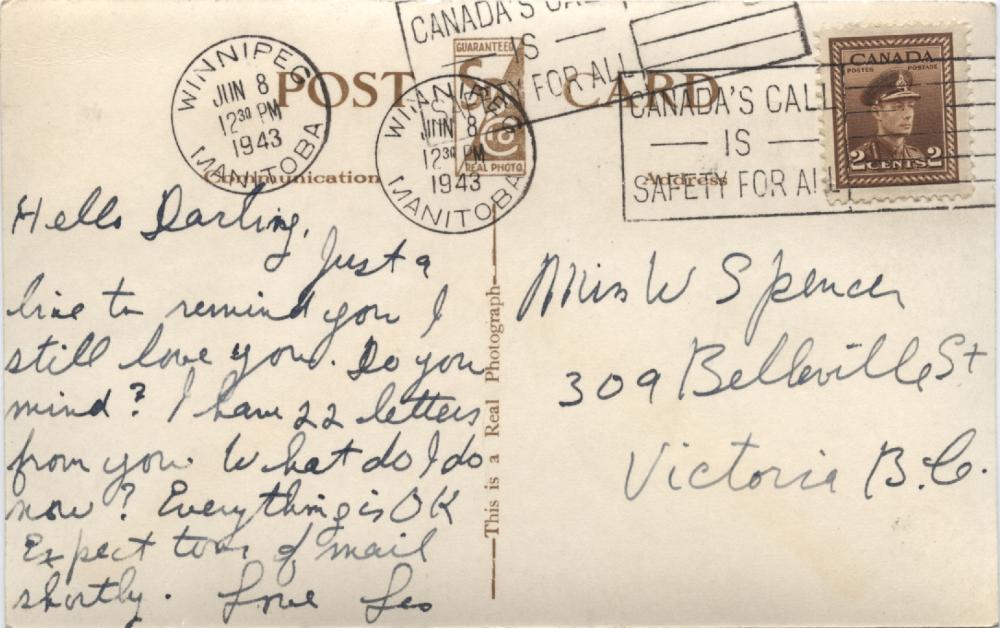 WINNIPEG
JUN 8
12 30 PM
1943
MANITOBA
WINNIPEG
JUN 8
12 30 PM
1943
MANITOBA
CANADA'S CALL
IS
SAFETY FOR ALL
CANADA'S CALL
IS
SAFETY FOR ALL
CANADA
POSTES POSTAGE
2 CENTS 2
POST CARD
GUARANTEED
REAL PHOTO
Communication
Address
This is a Real Photograph
Hello Darling,
Just a
line to remind you I
still love you. Do you
mind? I have 22 letters
from you. What do I do
now? Everything is OK
Expect tons of mail
shortly. Love Les
Miss W Spencer
309 Belleville St
Victoria B.C.